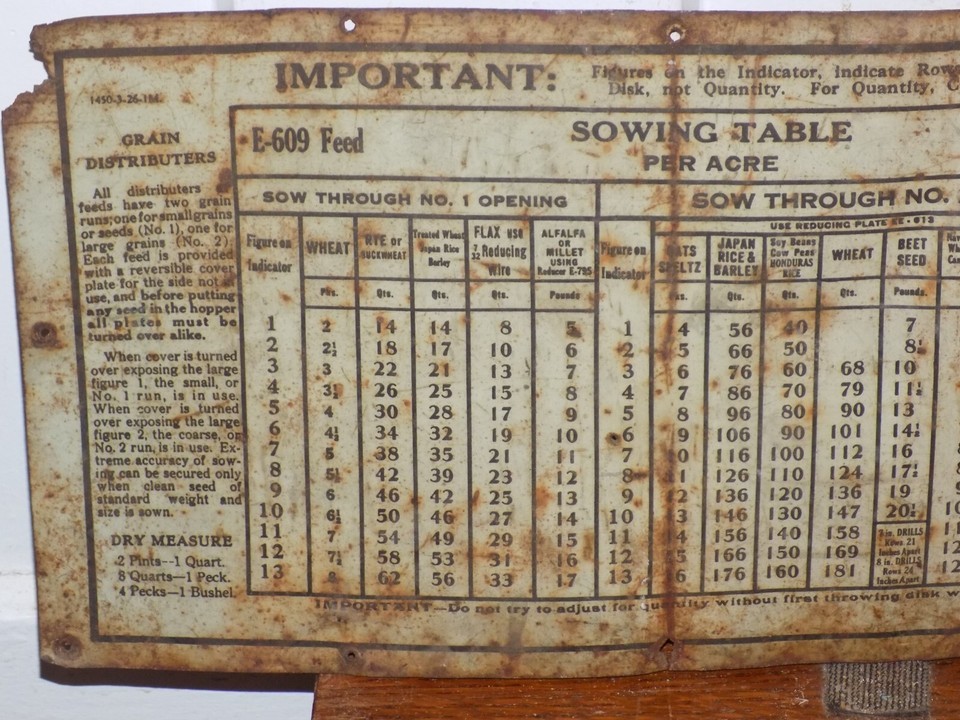 IMPORTANT:
Figures on the Indicator, indicate
Disk, not Quantity. For Quantity,
GRAIN
DISTRIBUTERS
All distributers
feeds have two grain
runs; one for small grains
or seeds (No. 1), one for
large grains (No. 2).
Each feed is provided
with a reversible cover
plate for the side not in
use, and before putting
any seed in the hopper
all plates must be
turned over alike.
When cover is turned
over exposing the large
figure 1, the small, or
No. 1 run, is in use.
When cover is turned
over exposing the large
figure 2, the coarse, or
No. 2 run, is in use. Ex-
treme accuracy of sow-
ing can be secured only
when clean seed of
standard weight and
size is sown.
DRY MEASURE
2 Pints--1 Quart.
8 Quarts—1 Peck.
4 Pecks—1 Bushel.
E-609 Feed
SOWING TABLE
PER ACRE
SOW THROUGH NO. 1 OPENING
SOW THROUGH NO.
USE REDUCING PLATE
Figure on Indicator WHEAT RYE or BUCKWHEAT Treated Wheat Japan Rice Barley FLAX use 7/32 Reducing Wire ALFALFA OR MILLET USING Reducer E-795 Figure on Indicator JAPAN RICE & BARLEY Soy Beans Cow Peas HONDURAS RICE WHEAT BEET SEED
Pks. Qts. Qts. Qts. Pounds Qts. Qts. Qts. Pounds.
1 2 14 14 8 5 1 4 56 40 7
2 2½ 18 17 10 6 2 5 66 50 8½
3 3 22 21 13 7 3 6 76 60 68 10
4 3½ 26 25 15 8 4 7 86 70 79 11½
5 4 30 28 17 9 5 8 96 80 90 13
6 4½ 34 32 19 10 6 9 106 90 101 14½
7 5 38 35 21 11 7 10 116 100 112 16
8 5½ 42 39 23 12 8 11 126 110 124 17½
9 6 46 42 25 13 9 12 136 120 136 19
10 6½ 50 46 27 14 10 13 146 130 147 20½
11 7 54 49 29 15 11 14 156 140 158
12 7½ 58 53 31 16 12 15 166 150 169
13 8 62 56 33 17 13 16 176 160 181
7 in. DRILLS
Rows 21
Inches Apart
8 in. DRILLS
Rows 24
Inches Apart
IMPORTANT—Do not try to adjust for quantity without first throwing disk